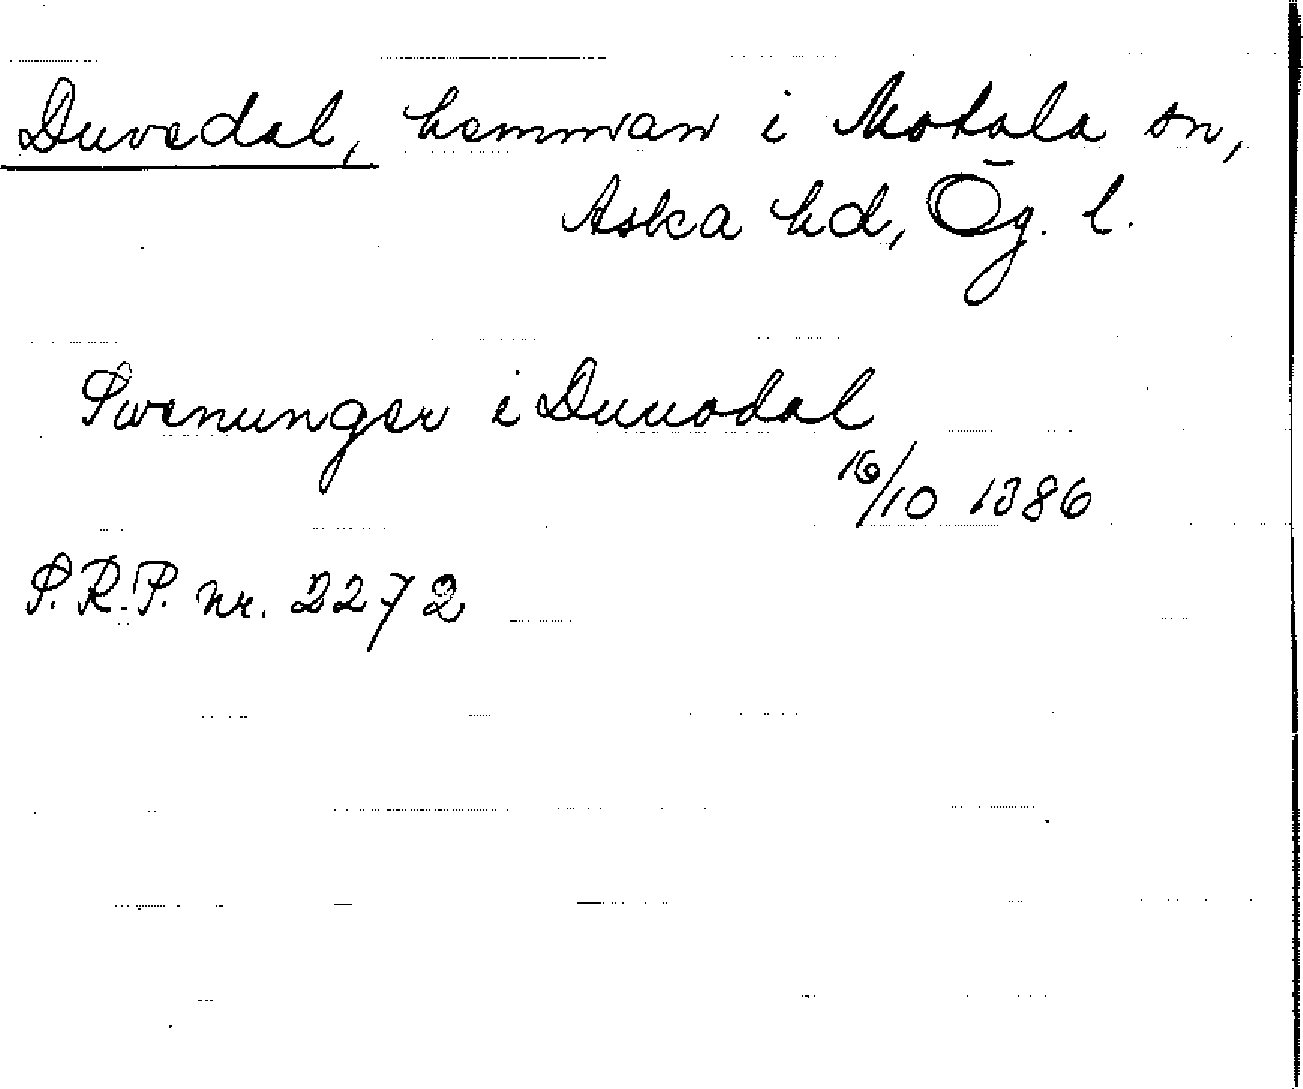 Duvedal, hemman i Motala sn,
Aska hd, Ög. l.
Swenunger i Duuodal
16/10 1386
S.R.P. nr. 2272